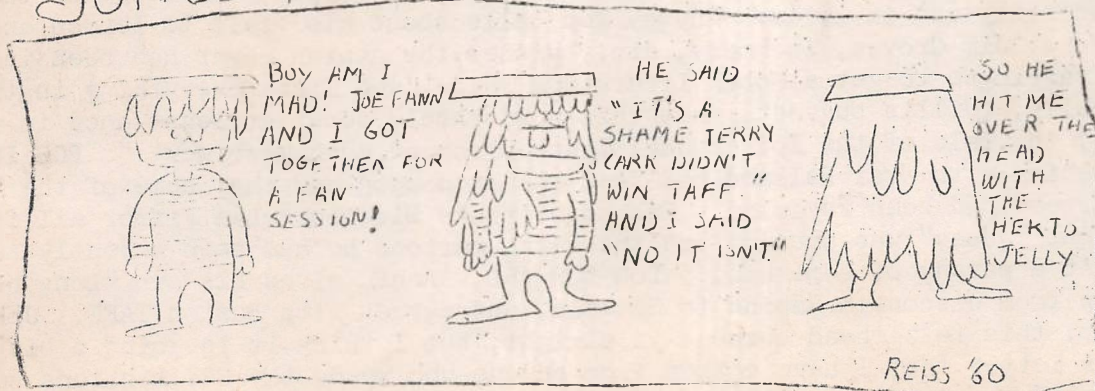 BOY AM I
MAD! JOE FANN
AND I GOT
TOGETHER FOR
A FAN
SESSION!
HE SAID
"IT'S A
SHAME TERRY
CARR DIDN'T
WIN TAFF"
AND I SAID
"NO IT ISN'T"
SO HE
HIT ME
OVER THE
HEAD
WITH
THE
HEKTO
JELLY
REISS '60